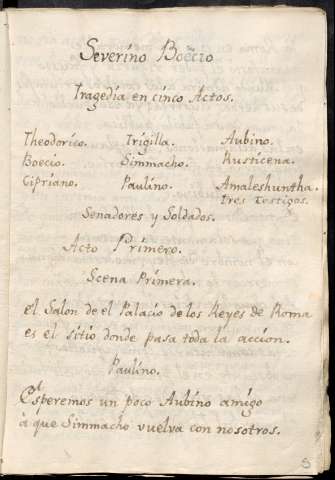 Severino Boecio
Tragedia en cinco Actos.
Theodorico. Trigilla. Aubino.
Boecio. Simmacho. Rusticena.
Cipriano. Paulino. Amaleshuntha.
Tres Testigos.
Senadores y Soldados.
Acto Primero.
Scena Primera.
el Salon de el Palacio de los Reyes de Roma
es el sitio donde pasa toda la accion.
Paulino.
Esperemos un poco Aubino amigo
à que Simmacho vuelva con nosotros.